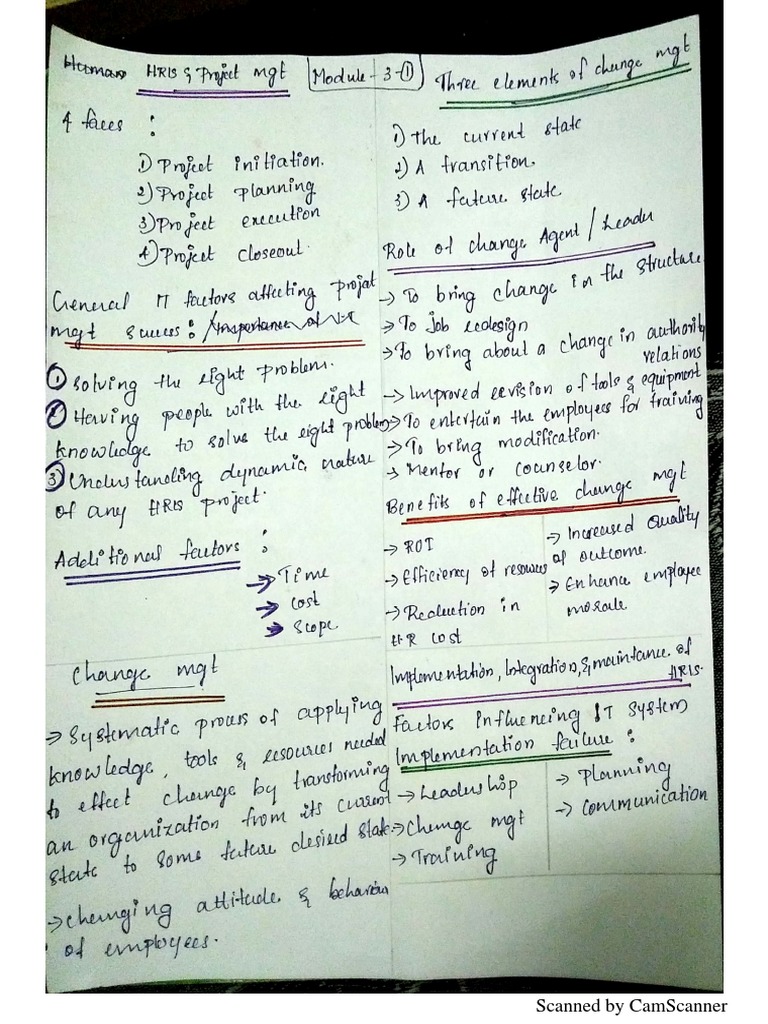 HRIS & Project mgt
Module-3-①
4 faces :
1) Project initiation.
2) Project planning
3) Project execution
4) Project closeout.
General IT factors affecting projat
mgt success :
① Solving the right problem.
② Having people with the right
knowledge to solve the right problem
③ Understanding dynamic nature
of any HRIS project.
Additional factors :
→ Time
→ Cost
→ Scope
Change mgt
→ Systematic process of applying
knowledge, tools & resources needed
to effect change by transforming
an organization from its current
state to some future desired state
→ Changing attitude & behavior
of employees.
Three elements of change mgt
1) The current state
2) A transition.
3) A future state
Role of change Agent / Leader
→ To bring change in the structure
→ To job redesign
→ To bring about a change in authority
relations
→ Improved revision of tools & equipment
→ To entertain the employees for training
→ To bring modification.
→ Mentor or counselor.
Benefits of effective change mgt
→ ROI
→ Efficiency of resources
→ Reduction in
HR cost
→ Increased Quality
of outcome.
→ Enhance employee
morale.
Implementation, Integration, & maintance of
HRIS.
Factors Influencing IT system
Implementation failure :
→ Leadership
→ Change mgt
→ Training
→ Planning
→ Communication
Scanned by CamScanner